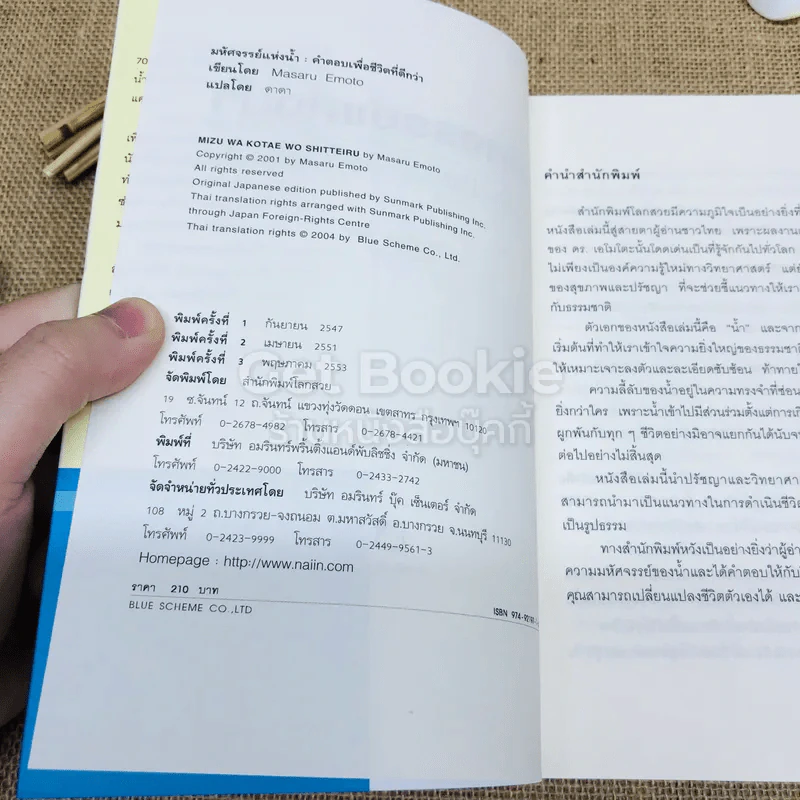 มหัศจรรย์แห่งน้ำ : คำตอบเพื่อชีวิตที่ดีกว่า
เขียนโดย Masaru Emoto
แปลโดย ดาดา
MIZU WA KOTAE WO SHITTEIRU by Masaru Emoto
Copyright © 2001 by Masaru Emoto
All rights reserved
Original Japanese edition published by Sunmark Publishing Inc.
Thai translation rights arranged with Sunmark Publishing Inc.
through Japan Foreign-Rights Centre
Thai translation rights © 2004 by Blue Scheme Co., Ltd.
พิมพ์ครั้งที่ 1 กันยายน 2547
พิมพ์ครั้งที่ 2 เมษายน 2551
พิมพ์ครั้งที่ 3 พฤษภาคม 2553
จัดพิมพ์โดย สำนักพิมพ์โลกสวย
19 ซ.จันทน์ 12 ถ.จันทน์ แขวงทุ่งวัดดอน เขตสาทร กรุงเทพฯ 10120
โทรศัพท์ 0-2678-4982 โทรสาร 0-2678-4421
พิมพ์ที่ บริษัท อมรินทร์พริ้นติ้งแอนด์พับลิชชิ่ง จำกัด (มหาชน)
โทรศัพท์ 0-2422-9000 โทรสาร 0-2433-2742
จัดจำหน่ายทั่วประเทศโดย บริษัท อมรินทร์ บุ๊ค เซ็นเตอร์ จำกัด
108 หมู่ 2 ถ.บางกรวย-จงถนอม ต.มหาสวัสดิ์ อ.บางกรวย จ.นนทบุรี 11130
โทรศัพท์ 0-2423-9999 โทรสาร 0-2449-9561-3
Homepage : http://www.naiin.com
ราคา 210 บาท
BLUE SCHEME CO.,LTD
ISBN 974-92181-
Get Bookie
ร้านหนังสือบุ๊คกี้
คำนำสำนักพิมพ์
สำนักพิมพ์โลกสวยมีความภูมิใจเป็นอย่างยิ่งที่
หนังสือเล่มนี้สู่สายตาผู้อ่านชาวไทย เพราะผลงาน
ของ ดร. เอโมโตะนั้นโดดเด่นเป็นที่รู้จักกันไปทั่วโลก
ไม่เพียงเป็นองค์ความรู้ใหม่ทางวิทยาศาสตร์ แต่
ของสุขภาพและปรัชญา ที่จะช่วยชี้แนวทางให้เรา
กับธรรมชาติ
ตัวเอกของหนังสือเล่มนี้คือ “น้ำ” และจาก
เริ่มต้นที่ทำให้เราเข้าใจความยิ่งใหญ่ของธรรมชาติ
ให้เหมาะเจาะลงตัวและละเอียดซับซ้อน ท้าทาย
ความลี้ลับของน้ำอยู่ในความทรงจำที่ซ่อน
ยิ่งกว่าใคร เพราะน้ำเข้าไปมีส่วนร่วมตั้งแต่การ
ผูกพันกับทุก ๆ ชีวิตอย่างมิอาจแยกกันได้นับจาก
ต่อไปอย่างไม่สิ้นสุด
หนังสือเล่มนี้นำปรัชญาและวิทยาศา
สามารถนำมาเป็นแนวทางในการดำเนินชีวิต
เป็นรูปธรรม
ทางสำนักพิมพ์หวังเป็นอย่างยิ่งว่าผู้อ่าน
ความมหัศจรรย์ของน้ำและได้คำตอบให้กับ
คุณสามารถเปลี่ยนแปลงชีวิตตัวเองได้ และ